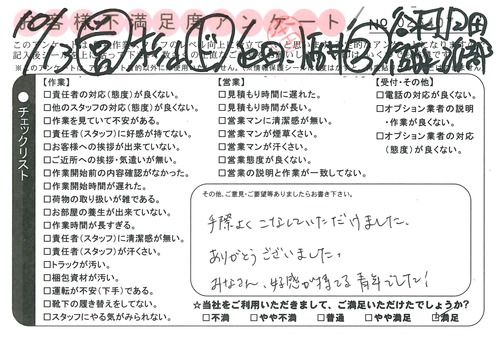 お客様不満足度アンケート
チェックリスト
【作業】
□責任者の対応(態度)が良くない。
□他のスタッフの対応(態度)が良くない。
□作業を見ていて不安がある。
□責任者(スタッフ)に好感が持てない。
□お客様への挨拶が出来ていない。
□ご近所への挨拶・気遣いが無い。
□作業開始前の内容確認がなかった。
□作業開始時間が遅れた。
□荷物の取り扱いが雑である。
□お部屋の養生が出来ていない。
□作業時間が長すぎる。
□責任者(スタッフ)に清潔感が無い。
□責任者(スタッフ)が汗くさい。
□トラックが汚い。
□梱包資材が汚い。
□運転が不安(下手)である。
□靴下の履き替えをしてない。
□スタッフにやる気がみられない。
【営業】
□見積もりに遅れた。
□見積もり時間が長い。
□営業マンに清潔感が無い。
□営業マンが煙草くさい。
□営業マンが汗くさい。
□営業態度が良くない。
□営業の説明と作業が一致してない。
【受付・その他】
□電話の対応が良くない。
□オプション業者の説明
・作業が良くない。
□オプション業者の対応
(態度)が良くない。
その他、ご意見・ご要望等ありましたらお書き下さい。
手際よくこなしていただけました、
ありがとうございました。
みなさん、好感が持てる青年でした!
☆当社をご利用いただきまして、ご満足いただけたでしょうか?
□不満 □やや不満 □普通 □やや満足 ☑満足